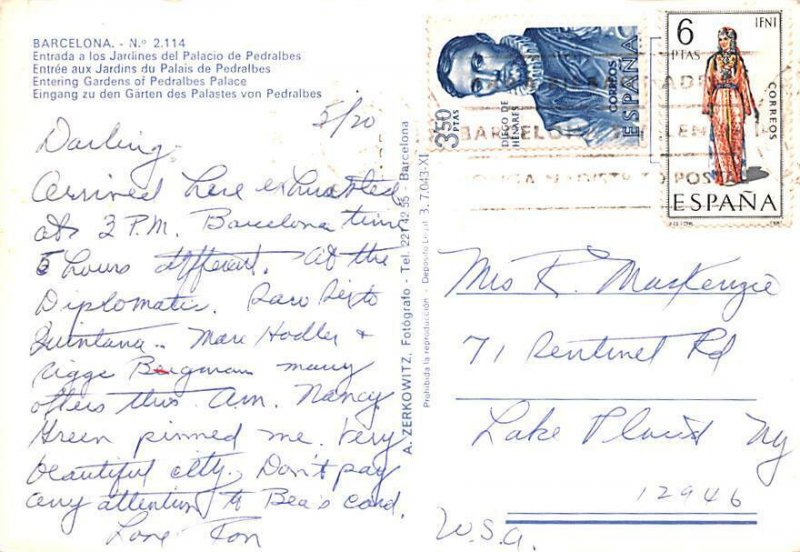 BARCELONA. - N.º 2.114
Entrada a los Jardines del Palacio de Pedralbes
Entrée aux Jardins du Palais de Pedralbes
Entering Gardens of Pedralbes Palace
Eingang zu den Gärten des Palastes von Pedralbes
5/20
Darling,
Arrived here exhausted
at 2 P.M. Barcelona time
5 hours different. At the
Diplomatic. Sixto
Quintana.. Marc Hodler &
Bergman many
others this a.m. Nancy
Green pinned me. Very
beautiful city. Don't pay
any attention to Bea's card.
Love Ron
A. ZERKOWITZ, Fotógrafo - Tel. 221 42 55 - Barcelona
Prohibida la reproducción. - Depósito Legal B. 7.043-XI
3'50 PTAS
DIEGO DE HENARES
CORREOS
ESPAÑA
6 PTAS
IFNI
CORREOS
ESPAÑA
BARCELONA
Mrs R. MacKenzie
71 Sentinel Rd
Lake Placid NY
12946
U.S.A.